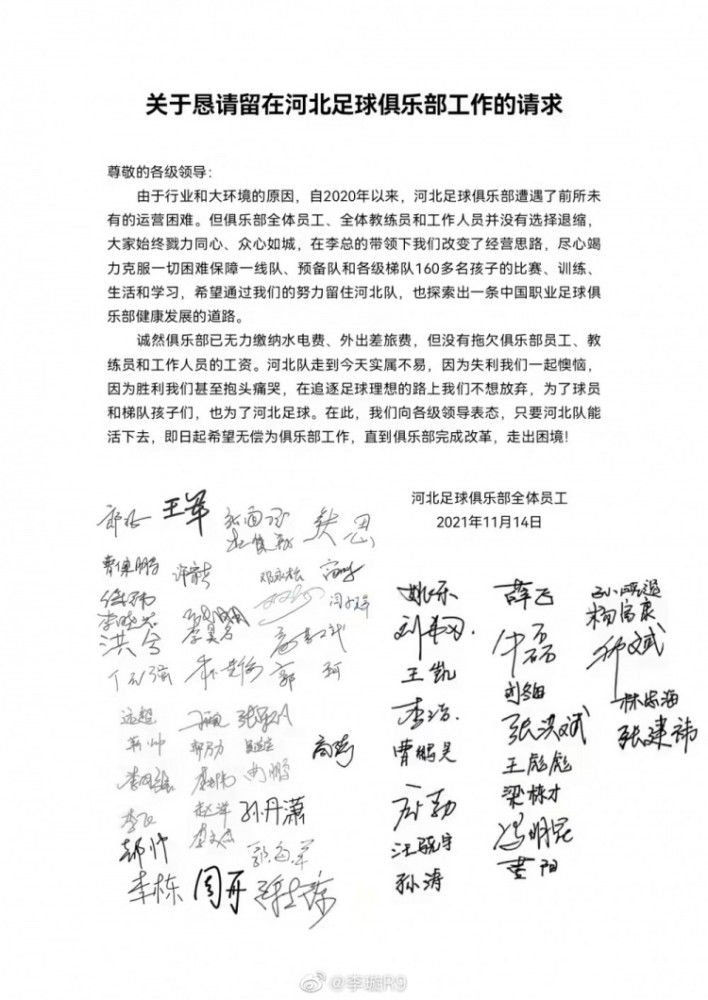 关于恳请留在河北足球俱乐部工作的请求
尊敬的各级领导：
由于行业和大环境的原因，自2020年以来，河北足球俱乐部遭遇了前所未
有的运营困难。但俱乐部全体员工、全体教练员和工作人员并没有选择退缩，
大家始终戮力同心、众心如城，在李总的带领下我们改变了经营思路，尽心竭
力克服一切困难保障一线队、预备队和各级梯队160多名孩子的比赛、训练、
生活和学习，希望通过我们的努力留住河北队，也探索出一条中国职业足球俱
乐部健康发展的道路。
诚然俱乐部已无力缴纳水电费、外出差旅费，但没有拖欠俱乐部员工、教
练员和工作人员的工资。河北队走到今天实属不易，因为失利我们一起懊恼，
因为胜利我们甚至抱头痛哭，在追逐足球理想的路上我们不想放弃，为了球员
和梯队孩子们，也为了河北足球。在此，我们向各级领导表态，只要河北队能
活下去，即日起希望无偿为俱乐部工作，直到俱乐部完成改革，走出困境！
河北足球俱乐部全体员工
2021年11月14日
王军
曹保鹏
洪兮
郭 珂
孙丹潇
李栋 周开
姚乐
王凯
李浩
曹鹏昊
汪骁宇
孙涛
薛飞
张洪斌
王彪彪
梁栋才
冯明昆
黄阳
杨富康
林忠海
张建祎
@李璇R9